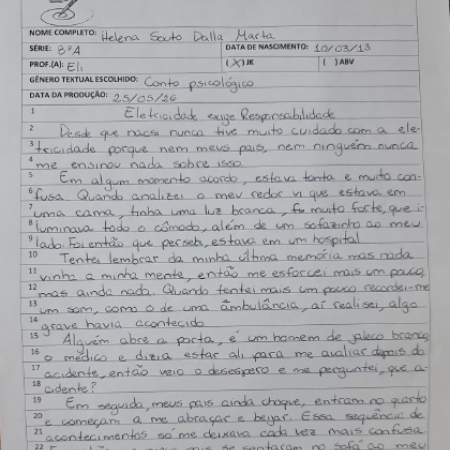 NOME COMPLETO: Helena Souto Dalla Marta
SÉRIE: 8ºA DATA DE NASCIMENTO: 10/03/13
PROF.(A): Eli (X) JK ( ) ABV
GÊNERO TEXTUAL ESCOLHIDO: Conto psicológico
DATA DA PRODUÇÃO: 25/05/26
1 Eletricidade exige Responsabilidade
2 Desde que nasci nunca tive muito cuidado com a ele-
3 tricidade porque nem meus pais, nem ninguém nunca
4 me ensinou nada sobre isso.
5 Em algum momento acordo, estava tonta e muito con-
6 fusa. Quando analizei o meu redor vi que estava em
7 uma cama, tinha uma luz branca, muito forte, que i-
8 luminava todo o cômodo, além de um sofazinho ao meu
9 lado. Foi então que persebi, estava em um hospital
10 Tentei lembrar da minha última memória mas nada
11 vinha a minha mente, então me esforcei mais um pouco,
12 mas ainda nada. Quando tentei mais um pouco recordei-me
13 um som, como o de uma âmbulância, aí realisei, algo
14 grave havia acontecido.
15 Alguém abre a porta, é um homem de jaleco branco,
16 o médico e dizia estar ali para me avaliar depois do
17 acidente, então veio o desespero e me perguntei, que a-
18 cidente?
19 Em seguida, meus pais ainda choque, entram no quarto
20 e começam a me abraçar e bejar. Essa sequência de
21 acontecimentos só me deixava cada vez mais confusa.
22 mais se sentaram no sofá ao meu